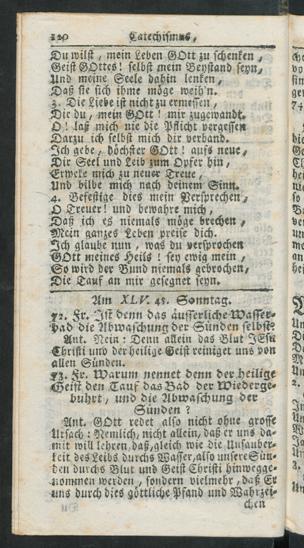 120 Catechismus,
Du wilst, mein Leben GOtt zu schenken,
Geist GOttes! selbst mein Beystand seyn,
Und meine Seele dahin lenken,
Daß sie sich ihme möge weih'n.
3. Die Liebe ist nicht zu ermessen,
Die du, mein GOtt! mir zugewandt.
O! laß mich nie die Pflicht vergessen
Darzu ich selbst mich dir verband.
Ich gebe, höchster GOtt! aufs neue,
Dir Seel und Leib zum Opfer hin,
Erweke mich zu neuer Treue,
Und bilde mich nach deinem Sinn.
4. Befestige dies mein Versprechen,
O Treuer! und bewahre mich,
Daß ich es niemals möge brechen,
Mein ganzes Leben preise dich.
Ich glaube nun, was du versprochen
GOtt meines Heils! sey ewig mein,
So wird der Bund niemals gebrochen,
Die Tauf an mir gesegnet seyn.
Am XLV. 45. Sonntag.
72. Fr. Ist denn das äusserliche Wasser-
bad die Abwaschung der Sünden selbst?
Ant. Nein: Denn allein das Blut JEsu
Christi und der heilige Geist reiniget uns von
allen Sünden.
73. Fr. Warum nennet denn der heilige
Geist den Tauf das Bad der Wiederge-
buhrt, und die Abwaschung der
Sünden?
Ant. GOtt redet also nicht ohne grosse
Ursach: Nemlich, nicht allein, daß er uns da-
mit will lehren, daß, gleich wie die Unsauber-
keit des Leibs durchs Wasser, also unsere Sün-
den durchs Blut und Geist Christi hinwegge-
nommen werden, sondern vielmehr, daß Er
uns durch dies göttliche Pfand und Wahrzei-
chen